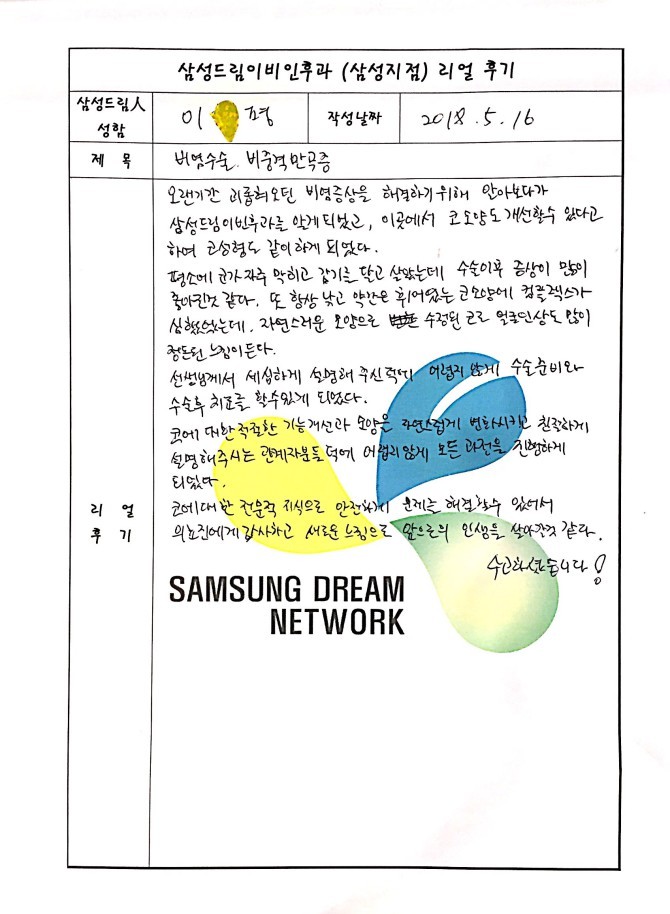 삼성드림이비인후과 (삼성지점) 리얼 후기
삼성드림人 성함
이 평
작성날짜
2018. 5. 16
제 목
비염수술. 비중격만곡증
리 얼 후 기
오랜기간 괴롭혀오던 비염증상을 해결하기위해 알아보다가
삼성드림이빈후과를 알게되었고, 이곳에서 코모양도 개선할수 있다고
하여 코성형도 같이하게 되었다.
평소에 코가자주 막히고 감기를 달고 살았는데 수술이후 증상이 많이
좋아진것 같다. 또 항상 낮고 약간은 휘어있는 코모양에 컴플렉스가
심했었는데, 자연스러운 모양으로 수정된 코로 얼굴인상도 많이
정돈된 느낌이든다.
선생님께서 세심하게 설명해 주신덕에 어렵지 않게 수술준비와
수술후 치료를 할수있게 되었다.
코에 대한 적절한 기능개선과 모양을 자연스럽게 변화시키고 친절하게
설명해주시는 관계자분들 덕에 어렵지않게 모든 과정을 진행하게
되었다.
코에대한 전문적 지식으로 안전하게 문제를 해결할수 있어서
의료진에게 감사하고 새로운 느낌으로 앞으로의 인생을 살아갈것 같다.
수고하셨습니다!
SAMSUNG DREAM
NETWORK